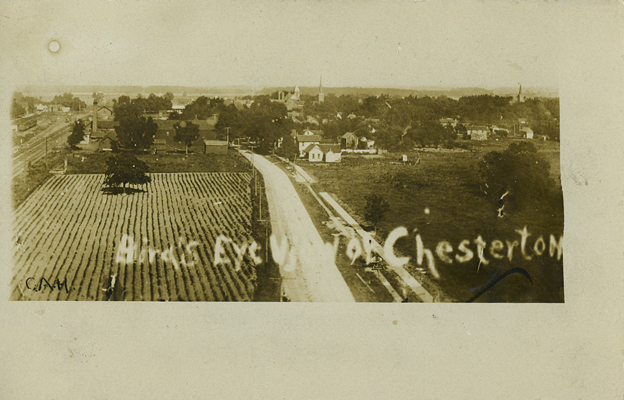 Bird's Eye View of Chesterton
C.A.H.